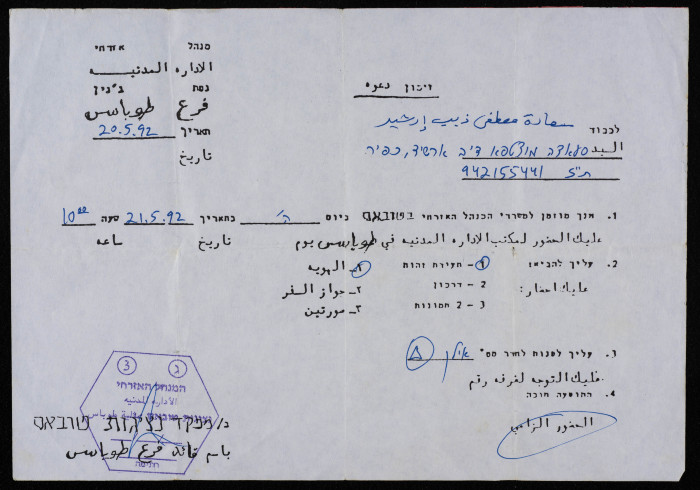 מנהל אזרחי
الادارة المدنية
נפת ג'נין
فرع طوباس
תאריך 20.5.92
تاريخ
זימון
לכבוד سعادة مصطفى ذيب إرشيد
السيد סעאדה מוצטפא דיב ארשיד, כפיר
ת"ז 942155441
1. אנך מוזמן למשרדי המנהל האזרחי בטובאס ביום ה' בתאריך 21.5.92 שעה 10⁰⁰
عليك الحضور لمكتب الادارة المدنيه في طوباس يوم تاريخ ساعه
2. עליך להביא: 1 - תעודת זהות ١- الهويه
عليك احضار: 2 - דרכון ٢- جواز السفر
3 - 2 תמונות ٣- صورتين
3. עליך לפנות לחדר מס' אילן
عليك التوجه لغرفه رقم
4. התופעה חובה
الحضور الزامي
ג 3
המנהל האזרחי
الادارة المدنيه
ד/ מפקד נציגות טובאס
باسم قائد فرع طوباس